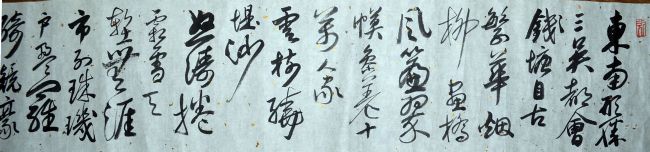 東南形勝
三吳都會
錢塘自古
繁華烟
柳畫橋
風簾翠
幙參差十
萬人家
雲樹繞
堤沙
怒濤捲
霜雪天
塹無涯
市列珠璣
戶盈羅
綺競豪